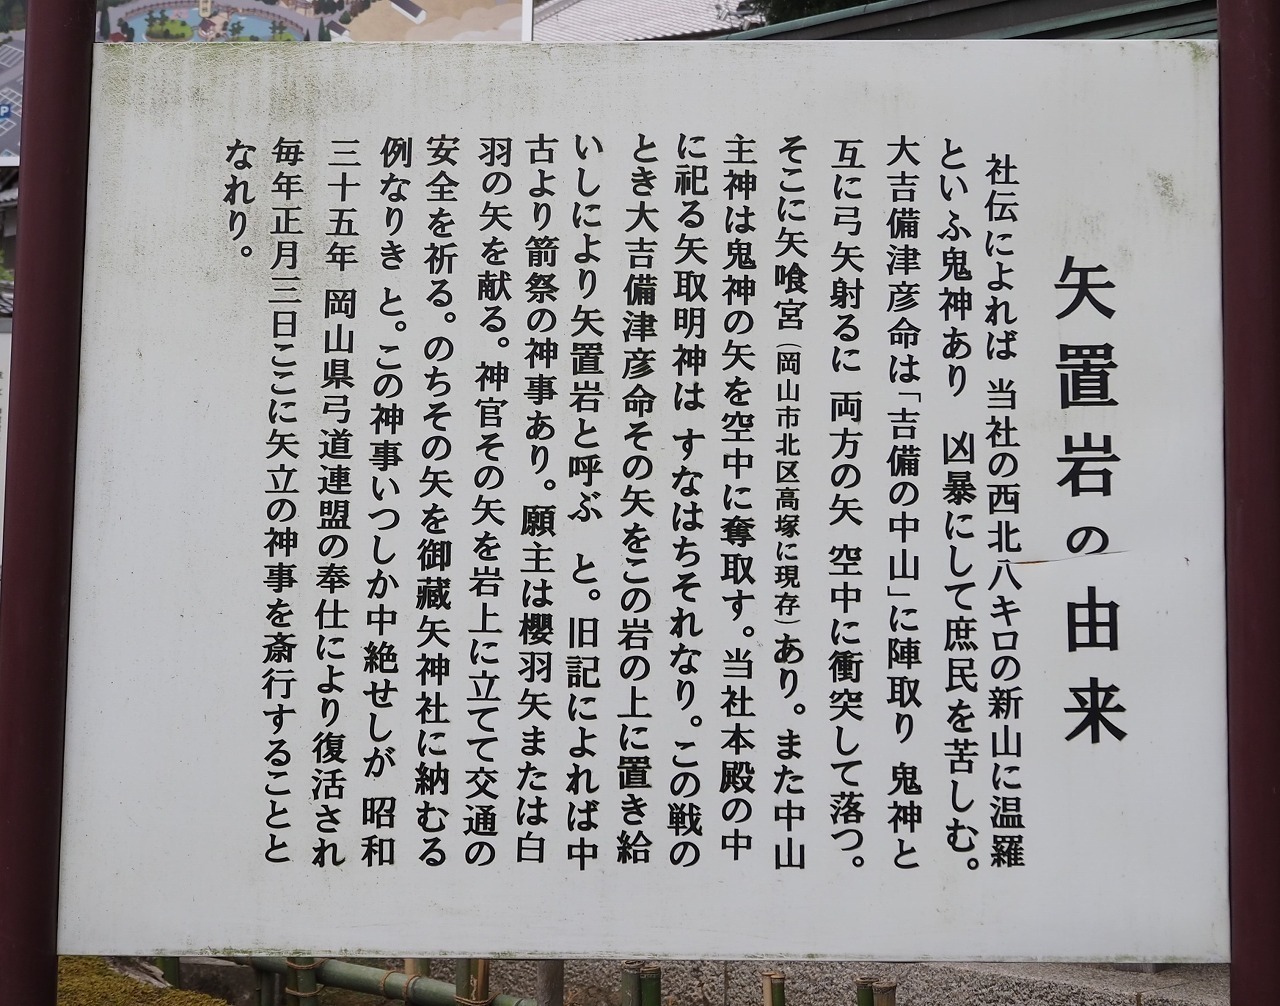 矢置岩の由来
社伝によれば 当社の西北八キロの新山に温羅
といふ鬼神あり 凶暴にして庶民を苦しむ。
大吉備津彦命は「吉備の中山」に陣取り 鬼神と
互に弓矢射るに 両方の矢 空中に衝突して落つ。
そこに矢喰宮（岡山市北区高塚に現存）あり。また中山
主神は鬼神の矢を空中に奪取す。当社本殿の中
に祀る矢取明神は すなはちそれなり。この戦の
とき大吉備津彦命その矢をこの岩の上に置き給
いしにより矢置岩と呼ぶ と。旧記によれば中
古より箭祭の神事あり。願主は櫻羽矢または白
羽の矢を献る。神官その矢を岩上に立てて交通の
安全を祈る。のちその矢を御藏矢神社に納むる
例なりき と。この神事いつしか中絶せしが 昭和
三十五年 岡山県弓道連盟の奉仕により復活され
毎年正月三日ここに矢立の神事を斎行することと
なれり。
P